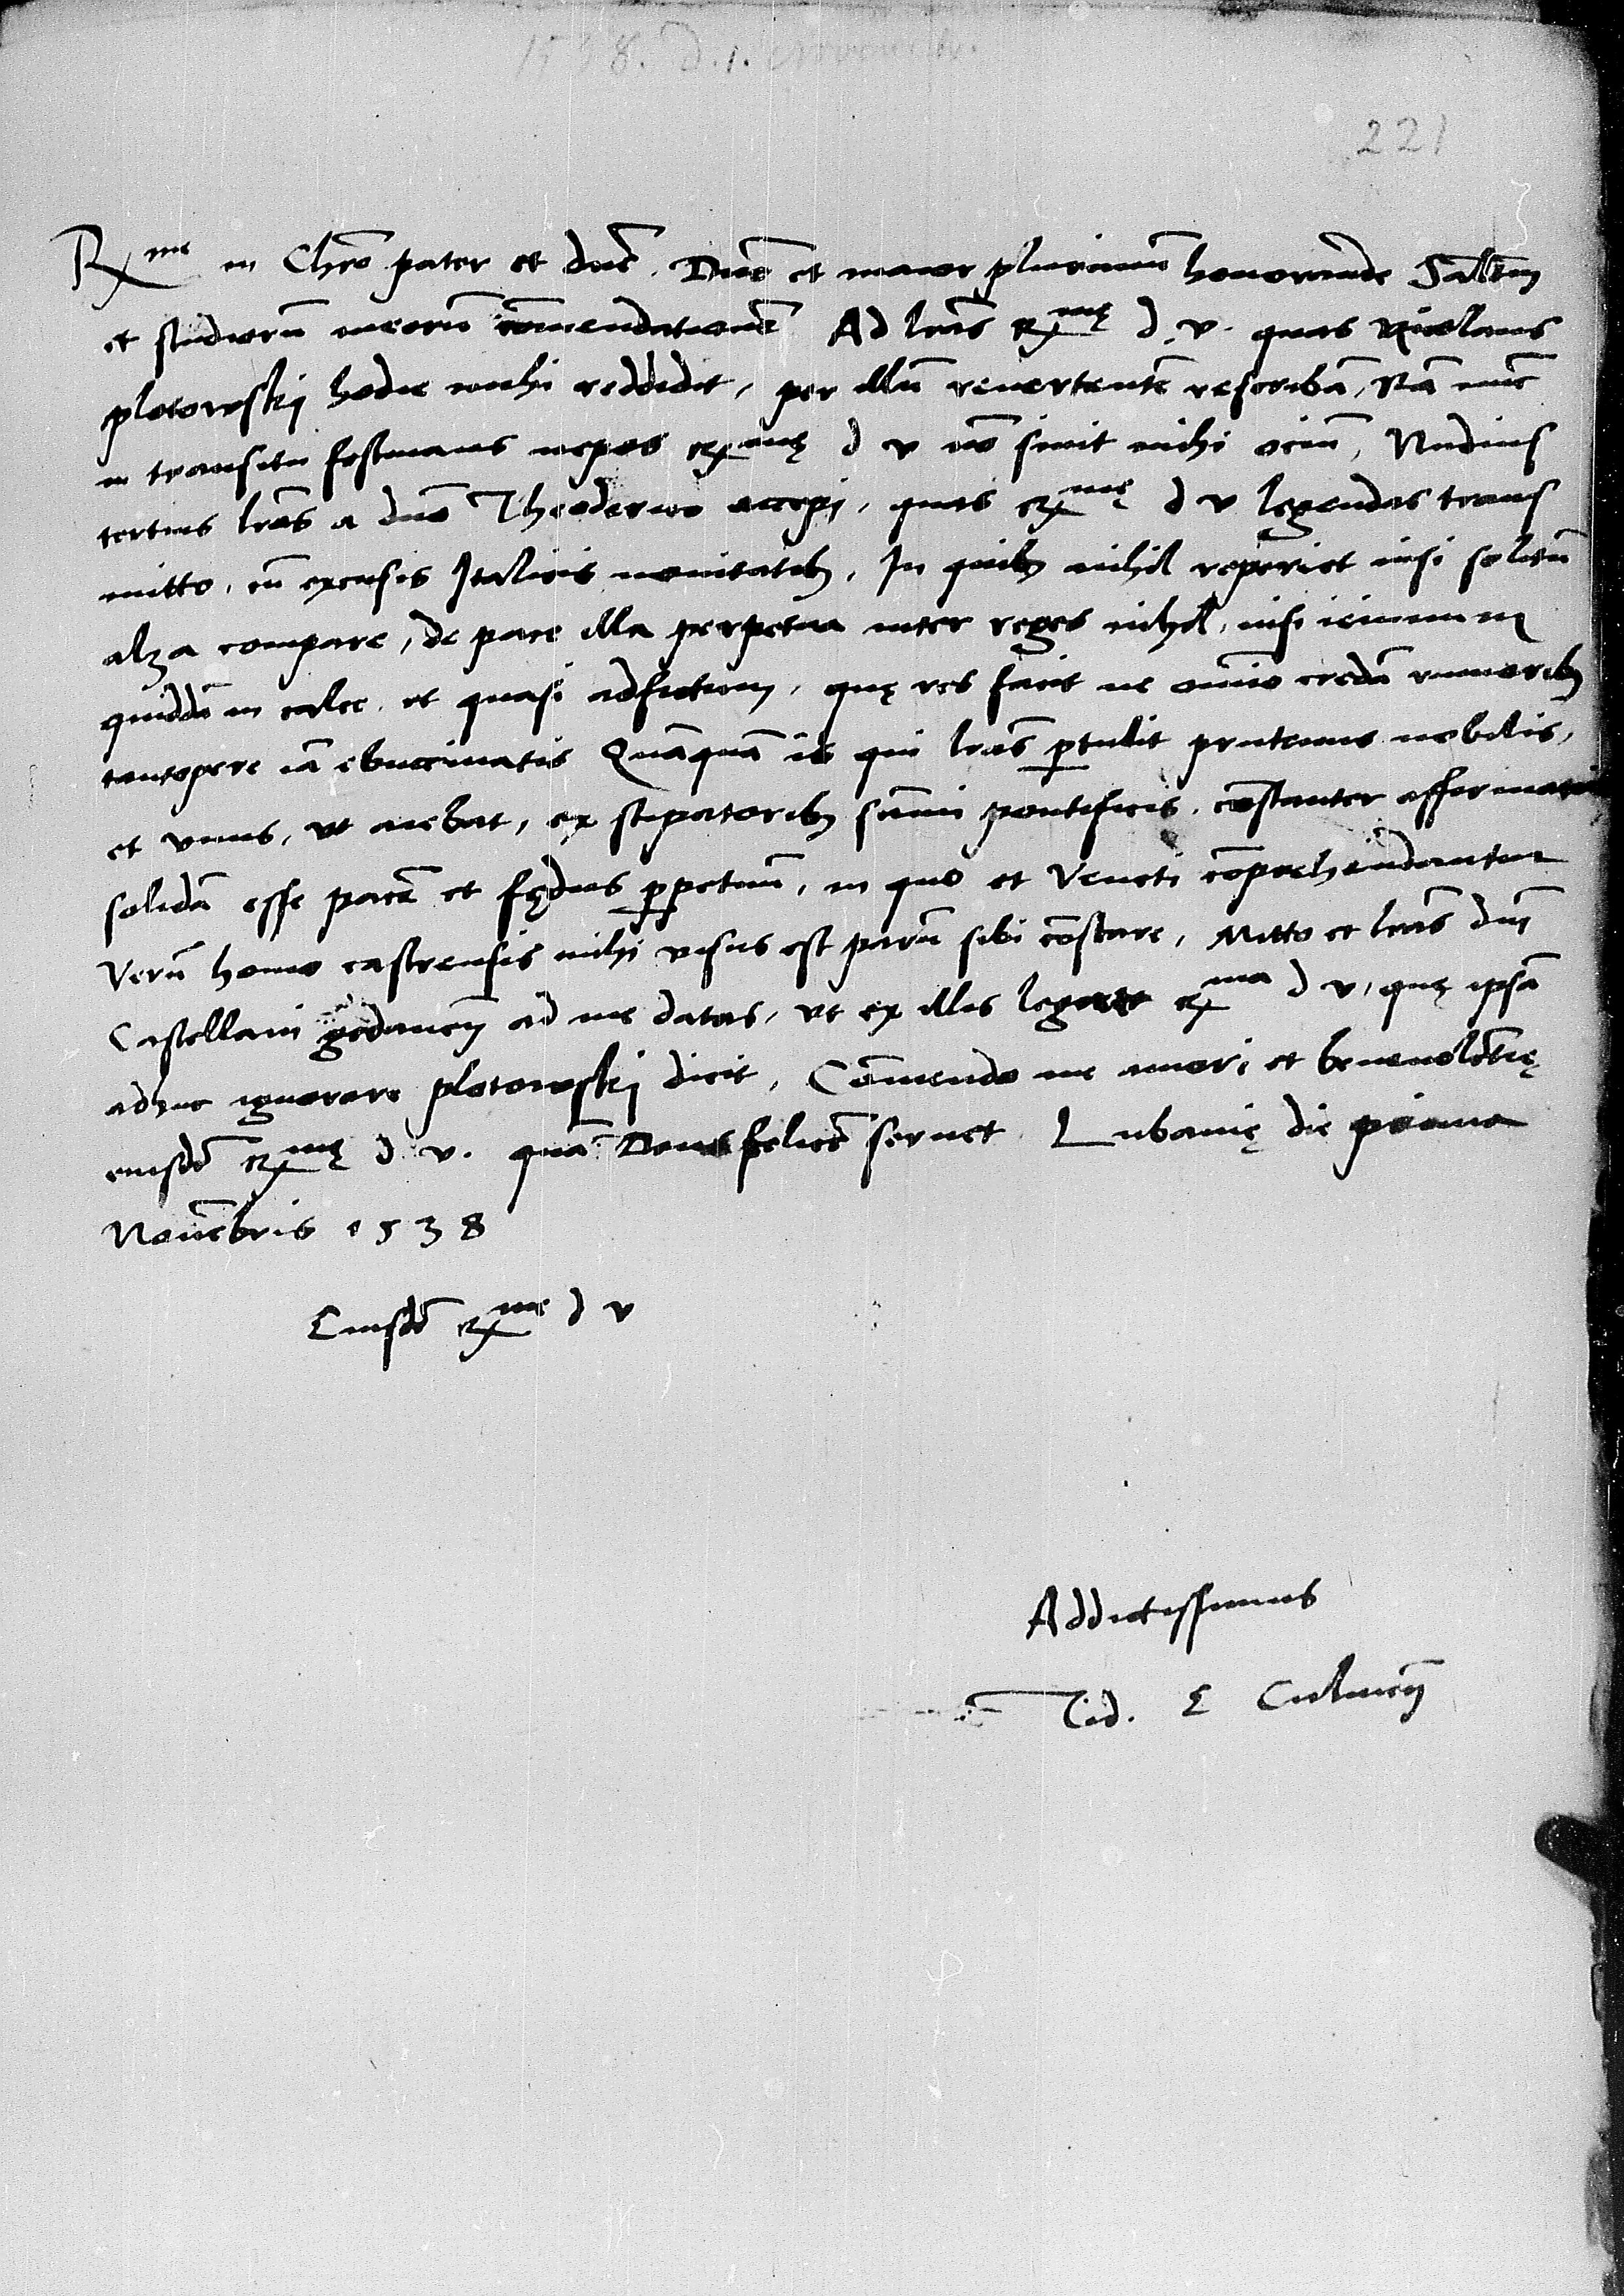 1538. d. 1. Novembr.
221
Rme in Chro pater et dne. Dne et maior plurimum honorande Saltem
et studiorum meorum comendationem Ad lras Rme d. v. quas Nicolaus
plotowskij hodie mihi reddidit, per illum revertentem rescribam, Nam nunc
in transitu festinans nepos Rme d v no sinit mihi ocium, Nudius
tertius lras a dno Theoderico accepi, quas Rme d v legendas trans
mitto, cum excusis Italicis novitatib, In quib nihil reperiet nisi solitum
alza compare, de pace illa perpetua inter reges nihil, nisi ieiunum
quiddam in calce, et quasi adfictum, quę res facit ne omnino credam rumorib
tantopere iam ebuccinatis Quamquam is qui lras pertulit prutenus nobilis,
et unus, ut aiebat, ex stipatorib summi pontificis, constanter affermat
solidam esse pacem et fędus perpetuum, in quo et Veneti comprehendantur
Verum homo castrensis mihi visus est parum sibi constare, Mitto et lras dni
Castellani gedanen ad me datas, ut ex illis legat Rma d v, quę ipsam
adhuc ignorare plotowskij dicit, Comendo me amori et benevolentię
eiusdem Rmę d. v. quam Deus felicem servet Lubavię die prima
Novembris 1538
Eiusdem Rme d v
Addictissimus
Tid. E Culmen